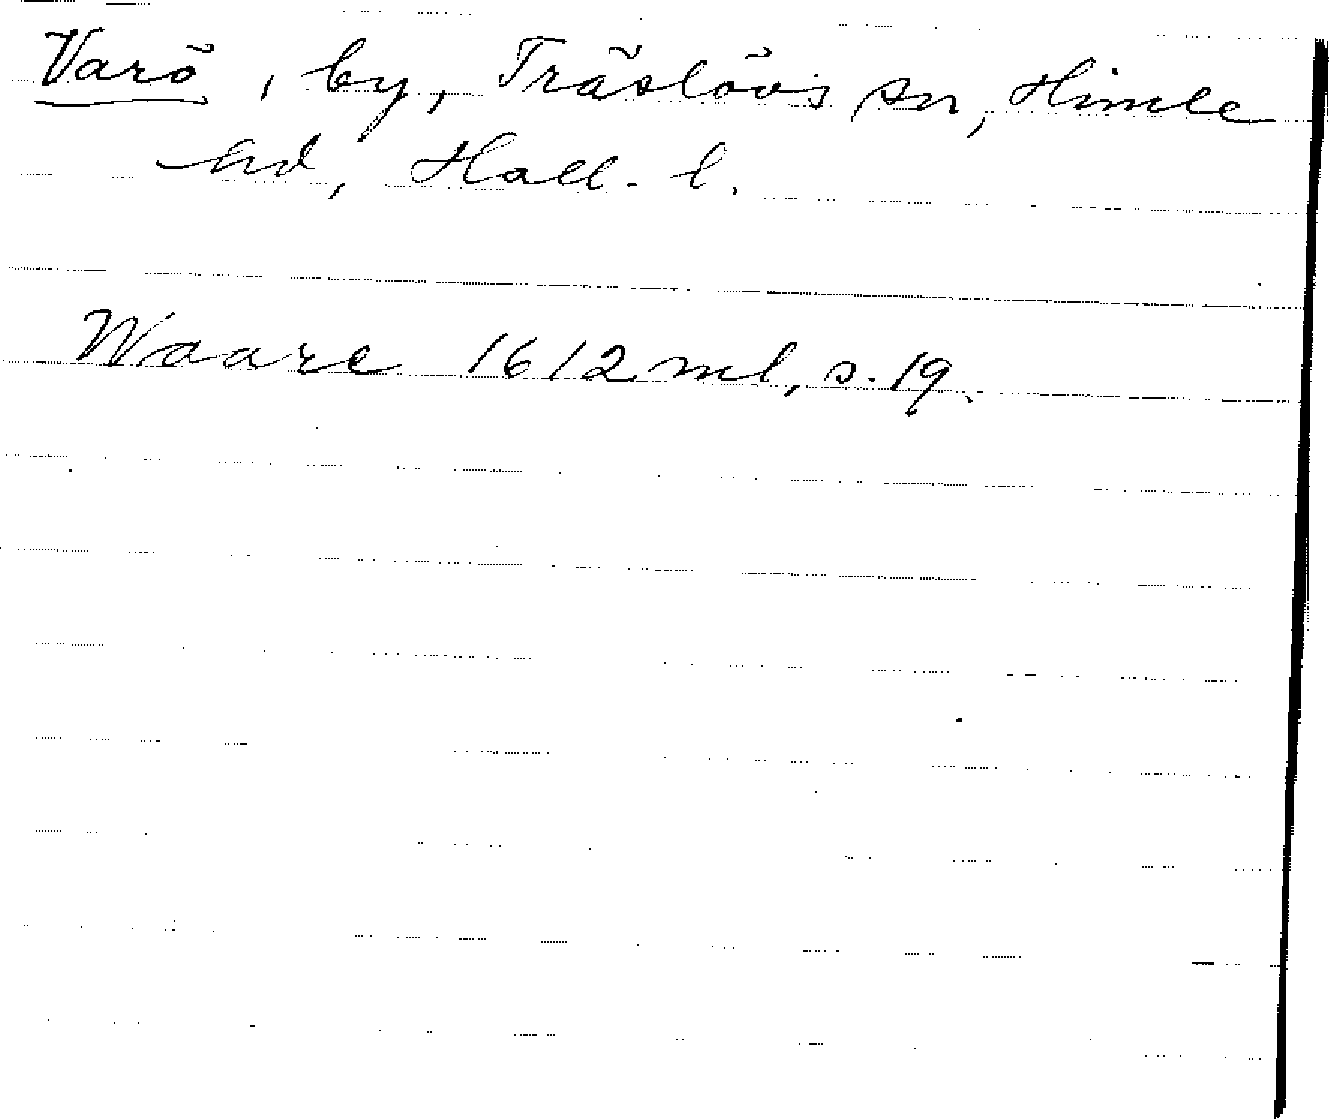 Varö, by, Träslövs sn, Himle
hd, Hall. l.
Waare 1612 ml, s. 19.